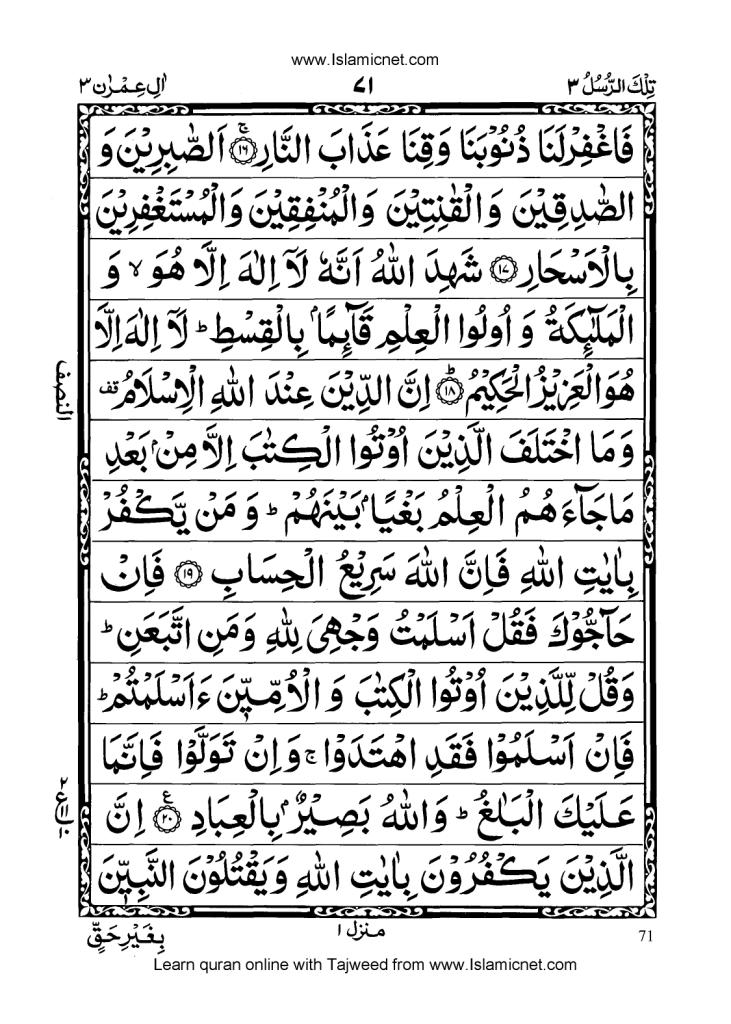 www.Islamicnet.com
تِلْكَ الرُّسُلُ ٣ ٧١ اٰلِ عِمْرٰن ٣
فَاغْفِرْلَنَا ذُنُوْبَنَا وَقِنَا عَذَابَ النَّارِ ۚ‏﴿۱۶﴾ اَلصّٰبِرِيْنَ وَ
الصّٰدِقِيْنَ وَالْقٰنِتِيْنَ وَالْمُنْفِقِيْنَ وَالْمُسْتَغْفِرِيْنَ
بِالْاَسْحَارِ ﴿۱۷﴾ شَهِدَ اللّٰهُ اَنَّهٗ لَاۤ اِلٰهَ اِلَّا هُوَ ۙ وَ
الْمَلٰٓئِكَةُ وَ اُولُوا الْعِلْمِ قَآئِمًاۢ بِالْقِسْطِ ؕ لَاۤ اِلٰهَ اِلَّا
هُوَ الْعَزِيْزُ الْحَكِيْمُ ؕ﴿۱۸﴾ اِنَّ الدِّيْنَ عِنْدَ اللّٰهِ الْاِسْلَامُ قف
النصف
وَ مَا اخْتَلَفَ الَّذِيْنَ اُوْتُوا الْكِتٰبَ اِلَّا مِنْۢ بَعْدِ
مَاجَآءَ هُمُ الْعِلْمُ بَغْيًاۢ بَيْنَهُمْ ؕ وَ مَنْ يَّكْفُرْ
بِاٰيٰتِ اللّٰهِ فَاِنَّ اللّٰهَ سَرِيْعُ الْحِسَابِ ﴿۱۹﴾ فَاِنْ
حَآجُّوْكَ فَقُلْ اَسْلَمْتُ وَجْهِيَ لِلّٰهِ وَمَنِ اتَّبَعَنِ ؕ
وَقُلْ لِّلَّذِيْنَ اُوْتُوا الْكِتٰبَ وَ الْاُمِّيّٖنَ ءَاَسْلَمْتُمْ ؕ
فَاِنْ اَسْلَمُوْا فَقَدِ اهْتَدَوْا ۚ وَاِنْ تَوَلَّوْا فَاِنَّمَا
عَلَيْكَ الْبَلٰغُ ؕ وَاللّٰهُ بَصِيْرٌۢ بِالْعِبَادِ ﴿۲۰﴾ع اِنَّ
الَّذِيْنَ يَكْفُرُوْنَ بِاٰيٰتِ اللّٰهِ وَيَقْتُلُوْنَ النَّبِيّٖنَ
71 منزل ١ بِغَيْرِحَقٍّ
Learn quran online with Tajweed from www.Islamicnet.com